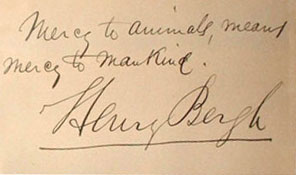 Mercy to animals, means
mercy to mankind.
Henry Bergh